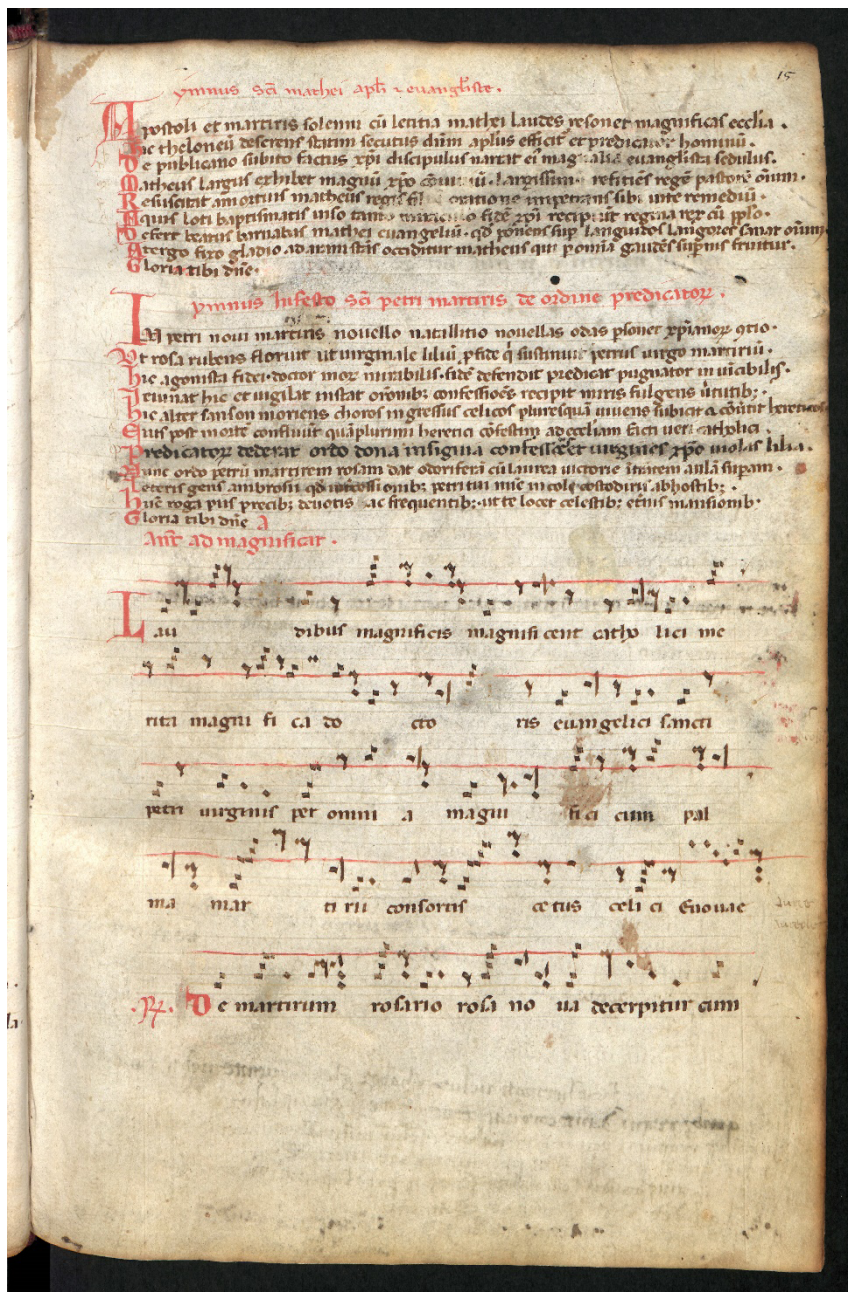 15
ymnus sci mathei apli ⁊ euangliste.
Apostoli et martiris solenni cū letitia mathei laudes resonet magnificas ecclia.
hic theloneū deserens statim secutus dnm aplus efficit et predicator hominū.
De publicano subito factus xpi discipulus narrat ei magnalia euanglista sedulus.
Matheus largus exhibet magnū xpo largissim reficiēs regē pastorē oīum.
Resuscitat a mortuis matheus regis fil oratione impetrans sibi uite remediū.
Aquis loti baptismatis uiso tanto fidē xpi recipiūt regina rex cū pplo.
Defert beatus barnabas mathei euangeliū. qd ponens sup languidos langores sanat oīum.
A tergo fixo gladio ad aram stās occiditur matheus qui p omīa gaudens supnis fruitur.
Gloria tibi dne.
ymnus In festo sci petri martiris de ordine predicatoꝝ.
IN petri noui martiris nouello natallitio nouellas odas psonet xpianoꝝ
Vt rosa rubens floruit ut uirginale liliū p fide q sustinuit petrus uirgo martiriū.
hic agonista fidei. doctor mirabilis. fidē defendit predicat pugnator inuīcibilis.
Ieiunat hic et uigilat instat oronibꝫ confessiōes recipit miris fulgens ututibꝫ.
hic alter sanson moriens choros ingressus celicos plures quā uiuens subicit & cōuertit hereticos
Eius post mortē confluūt quāplurimi heretici cōfestim ad eccliam facti ueri catholici.
Predicatoꝝ dederat ordo dona insignia confessores et uirgines xpo uiolas lilia.
Nunc ordo petrū martirem rosam dat odoriferā cū laurea uictorie aulā supam.
gens ambrosii qd petri tui nunc in cole ab hostibꝫ.
roga piis precibꝫ deuotis ac frequentibꝫ. ut te locet celestibꝫ etnis mansionibꝫ.
Gloria tibi dne A
Ant ad magnificat.
Lau dibus magnificis magnificent catho lici me
rita magni fi ca do cto ris euangelici sancti
petri uirginis per omni a magni fi ci cum pal
ma mar ti rii consortis ce tus celi ci Euouae
R. De martirum rosario rosa no ua decerpitur cum